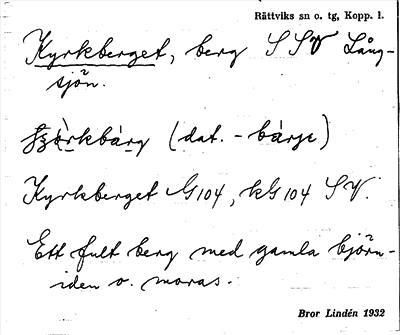 Rättviks sn o. tg, Kopp. l.
Kyrkberget, berg SSV Lång-
sjön.
(dat. - bárje)
Kyrkberget G104, kG104 SV.
Ett fult berg med gamla björn-
iden o. moras.
Bror Lindén 1932